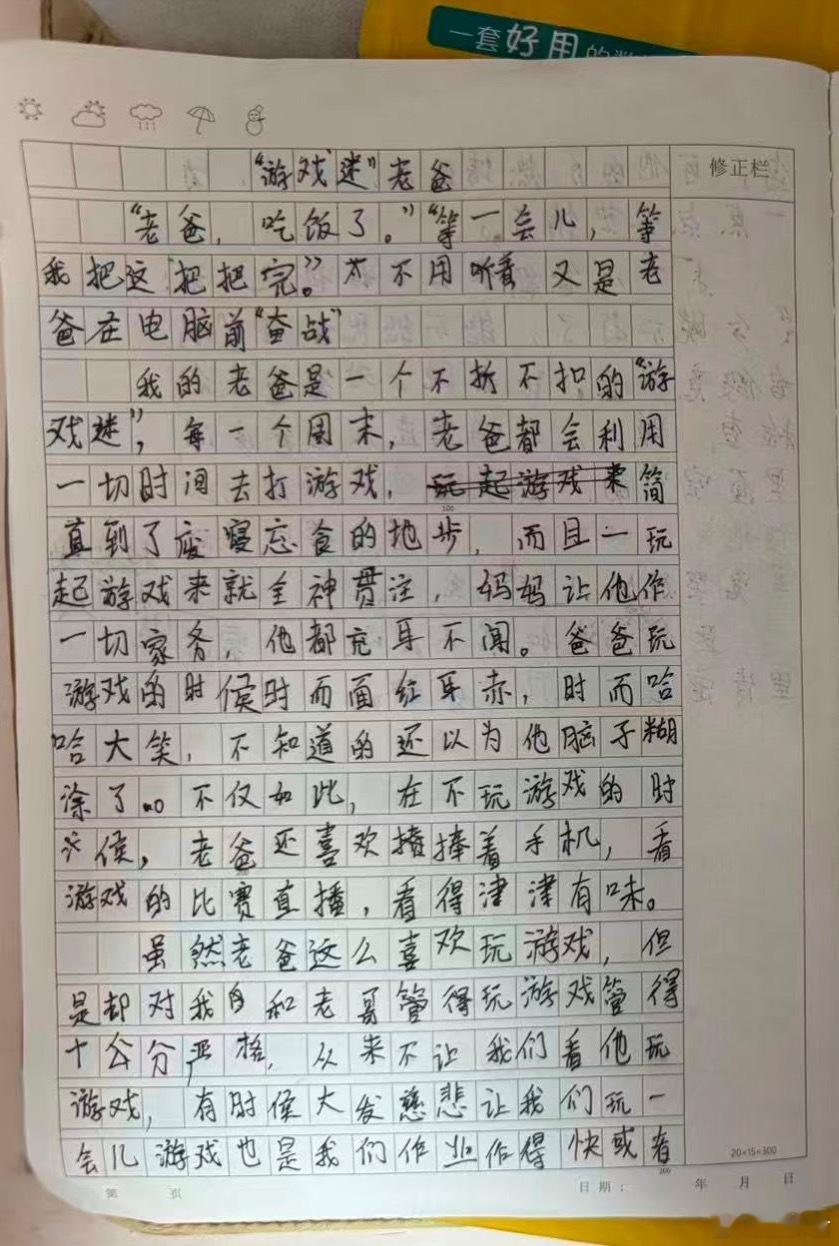 一套好用的
修正栏
“游戏迷”老爸
“老爸，吃饭了。”“等一会儿，等
我把这把把完”。不用听看又是老
爸在电脑前“奋战”
我的老爸是一个不折不扣的“游
戏迷”，每一个周末，老爸都会利用
一切时间去打游戏，玩起游戏来简
直到了废寝忘食的地步，而且一玩
起游戏来就全神贯注，妈妈让他作
一切家务，他都充耳不闻。爸爸玩
游戏的时侯时而面红耳赤，时而哈
哈大笑，不知道的还以为他脑子糊
涂了。不仅如此，在不玩游戏的时
侯，老爸还喜欢捧着手机，看
游戏的比赛直播，看得津津有味。
虽然老爸这么喜欢玩游戏，但
是却对我和老哥管得玩游戏管得
十分严格，从来不让我们看他玩
游戏，有时侯大发慈悲让我们玩一
会儿游戏也是我们作业作得快或者
20×15=300
第 页
日期： 年 月 日